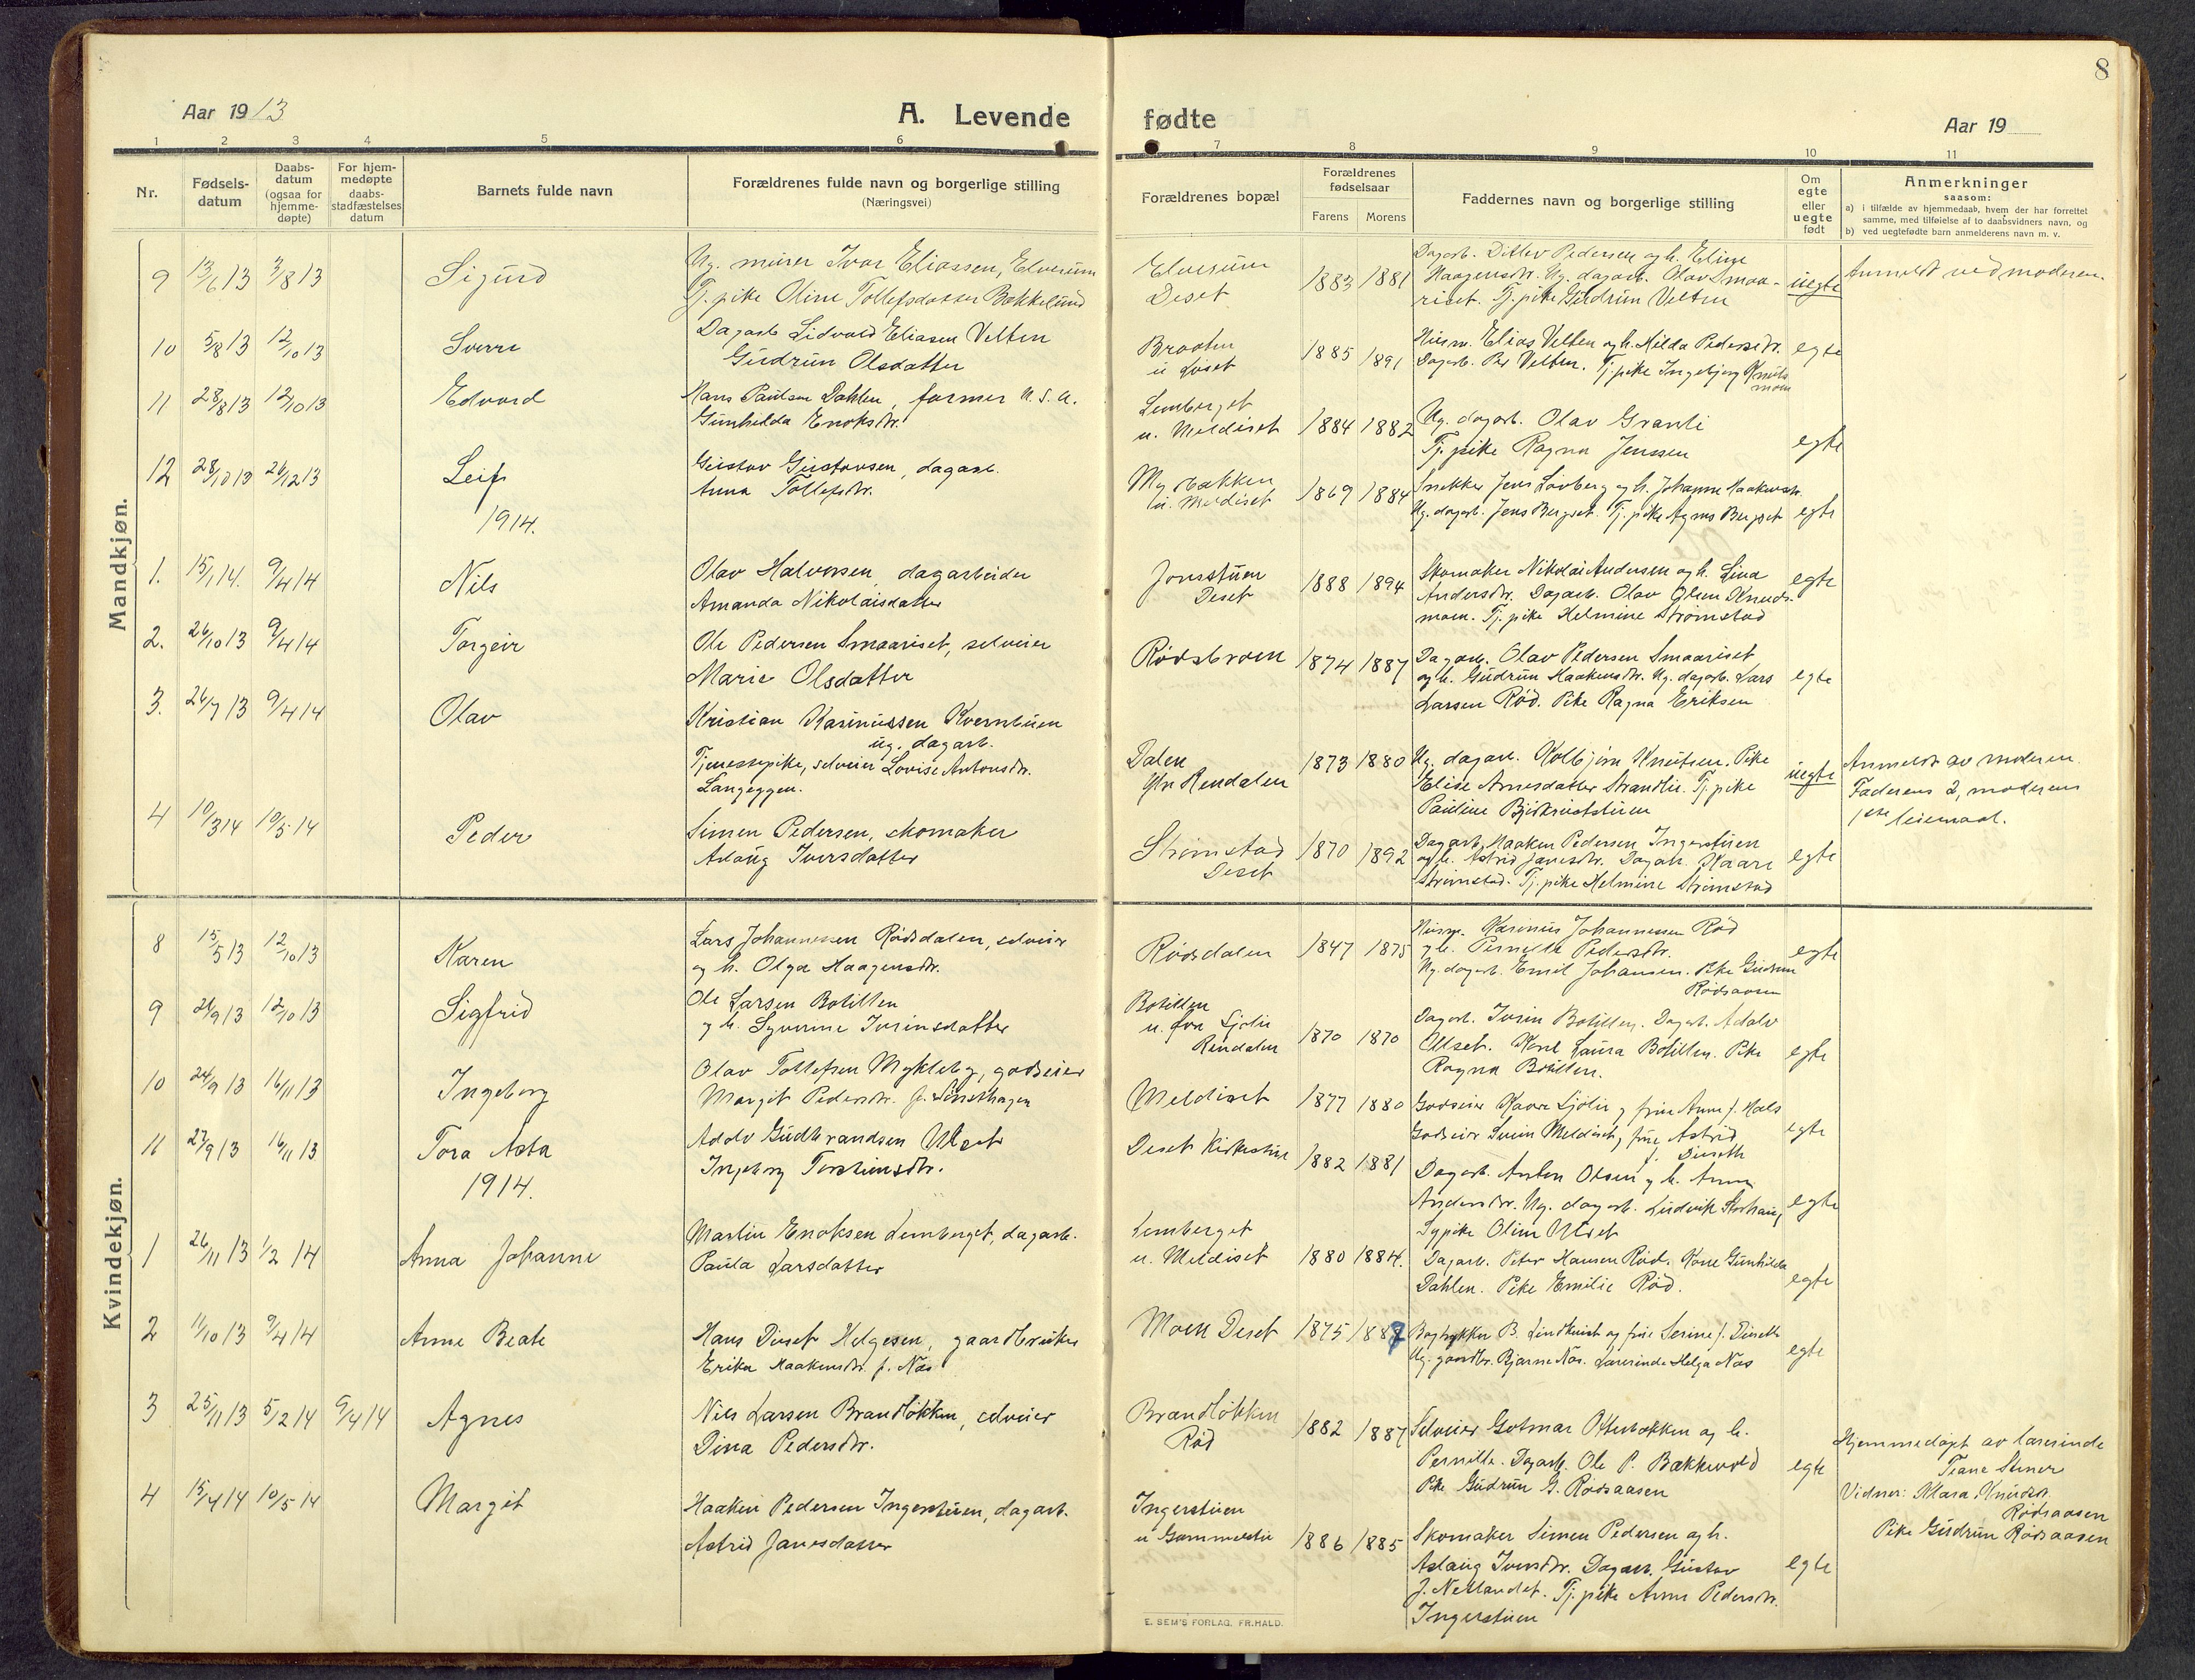 8
Aar 1913
A. Levende
fødte
Aar 19
1 2 3 4 5 6 7 8 9 10 11
Nr.
Fødsels-
datum
Daabs-
datum
(ogsaa for
hjemme-
døpte)
For hjem-
medøpte
daabs-
stadfæstelses
datum
Barnets fulde navn
Forældrenes fulde navn og borgerlige stilling
(Næringsvei)
Forældrenes bopæl
Forældrenes
fødselsaar
Farens Morens
Faddernes navn og borgerlige stilling
Om
egte
eller
uegte
født
Anmerkninger
saasom:
a) i tilfælde av hjemmedaab, hvem der har forrettet
samme, med tilføielse av to daabsvidners navn, og
b) ved uegtefødte barn anmelderens navn m. v.
Mandkjøn.
9 13/6 13 3/8 13 Sigurd
Ug. murer Ivar Eliassen, Elverum
Tj. pike Oline Tollefsdatter Bækkelund
Elverum
Deset
1883 1881
Dagarb. Ditlev Pedersen og h. Eline
Haagensdtr. Ug. dagarb. Olav Smaa-
riset. Tj. pike Gudrun Velten
uegte
Anmeldt ved moderen.
10 5/8 13 12/10 13 Sverre
Dagarb. Sidvard Eliasen Velten
Gudrun Olsdatter
Braaten
1885 1891
Husm. Elias Velten og h. Hilda Pedersdtr.
Dagarb. Per Velten. Tj. pike Ingebjørg Knuts
moen
egte
11 28/8 13 12/10 13 Edvard
Hans Paulsen Dahlen, farmer U.S.A.
Gunhilda Enoksdtr.
Lemberget
u. Meldiset
1884 1882
Ug. dagarb. Olav Granli
Tj. pike Ragna Jenssen
egte
12 28/10 13 26/12 13 Leif
Gustav Gustavsen, dagarb.
Anna Tollefsdtr.
u. Meldiset
1869 1884
Snekker Jens Løvberg og h. Johanne Haakensdtr.
Ug. dagarb. Jens Bergset. Tj. pike Agnes Bergset
egte
1914.
1. 15/1 14. 9/4 14 Nils
Olav Halvorsen, dagarbeider
Amanda Nikolaisdatter
Jonsstuen
Deset
1888 1894
Skomaker Nikolai Andersen og h. Lina
Andersdtr. Dagarb. Olav Olsen Knuds-
moen. Tj. pike Helmine Strømstad
egte
2. 26/10 13 9/4 14 Torgeir
Ole Pedersen Smaariset, selveier
Marie Olsdatter
Rødsbroen
1874 1887
Dagarb. Olav Pedersen Smaariset
og h. Gudrun Haakensdtr. Ug. dagarb. Lars
Larsen Rød. Pike Ragna Eriksen
egte
3. 26/7 13 9/4 14 Olav
Kristian Rasmussen Kvernbuen
ug. dagarb.
Tjenestepike, selveier Lovise Antonsdtr.
Langeggen.
Dalen
Ytre Rendalen
1873 1880
Ug. dagarb. Kolbjørn Knutsen. Pike
Elise Arnesdatter Strandlie. Tj. pike
Pauline
uegte
Anmeldt av moderen.
Faderens 2, moderens
1ste leiemaal.
4 10/3 14 10/5 14 Peder
Simen Pedersen, skomaker
Aslaug Iversdatter
Strømstad
Deset
1870 1892
Dagarb. Haaken Pedersen Ingerstuen
og h. Astrid Janesdtr. Dagarb. Kaare
Strømstad. Tj. pike Helmine Strømstad
egte
Kvindekjøn.
8 15/5 13 12/10 13 Karen
Lars Johannesen Rødsdalen, selveier
og h. Olga Haagensdtr.
Rødsdalen
1847 1875
Husm. Karinius Johannessen Rød
og h. Pernille Pedersdtr.
Ug. dagarb. Emil Johansen. Pike Gudrun
Rødsaasen
egte
9 21/9 13 12/10 13 Sigfrid
Ole Larsen Botilten
og h. Syverine Iversdatter
Botilten
u. fra Sjølie
Rendalen
1870 1870
Dagarb. Botilten. Dagarb. Adolv
Ollset. Kone Laura Botilten. Pike
Ragna Botilten.
egte
10 24/9 13 16/11 13 Ingeborg
Olav Tollefsen Mykleby, godseier
Margit Pedersdtr.
Meldiset
1877 1880
Godseier Kaare Sjølie og frue Anne f. Hals
Godseier Svein Meldiset og frue Astrid
f. Diseth
egte
11 27/9 13 16/11 13 Tora Asta
Adolv Gudbrandsen Ulset
Ingeborg Torsteinsdtr.
Deset Kirkestue
1882 1881
Dagarb. Anton Olsen og h. Anna
Andersdtr. Ug. dagarb. Ludvik Storhaug
Sypike Oline Ulset
egte
1914.
1 26/11 13 1/2 14 Anna Johanne
Martin Enoksen Lemberget, dagarb.
Paula Larsdatter
Lemberget
u. Meldiset
1880 1884.
Dagarb. Peter Hansen Rød. Kone Gunhilda
Dahlen. Pike Emilie Rød.
egte
2 11/10 13 9/4 14 Anne Beate
Hans Diset Helgesen, gaardbruker
Erika Haakensdtr. f. Næs
Moen Deset
1875 1887
Bagtykker B. Lindkvist og frue Serine f. Diseth
Ug. gaardbr. Bjarne Næs. Lærerinde Helga Næs
egte
3 25/11 13 5/2 14 9/4 14 Agnes
Nils Larsen Brandløkken, selveier
Dina Pedersdtr.
Brandløkken
Rød
1882 1887
Selveier Gotmar Otterbækken og h.
Pernille. Dagarb. Ole P. Bækkevold
Pike Gudrun G. Rødsaasen
egte
Hjemmedøpt av lærerinde
Teane Stener
Vidner: Klara Knudsdtr.
Rødsaasen
Pike Gudrun Rødsaasen
4 15/4 14 10/5 14 Margit
Haaken Pedersen Ingerstuen, dagarb.
Astrid Janesdatter
Ingerstuen
u Gammelstu
1886 1885
Skomaker Simen Pedersen og h.
Aslaug Iversdtr. Dagarb. Gustav
J. Nellandet. Tj. pike Anna Pedersdtr.
Ingerstuen
egte
E. SEM'S FORLAG, FR.HALD.